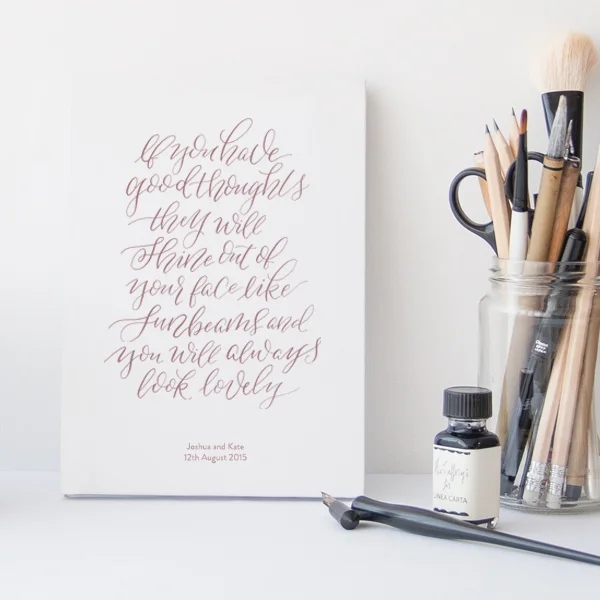 If you have
good thoughts
they will
shine out of
your face like
sunbeams and
you will always
look lovely
Joshua and Kate
12th August 2015
CARTA